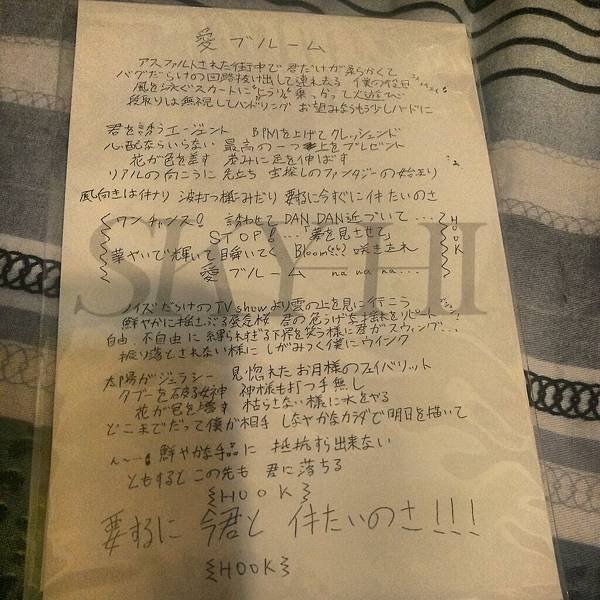 愛ブルーム
アスファルトされた街中で君だけが柔らかくて
バグだらけの回路抜け出して連れ去る 僕の役目
風を泳ぐスカートにヒラリと乗っかって火遊び
段取りは無視してハンドリング お望みならもう少しハードに
君を誘うエージェント BPMを上げてクレッシェンド
心配ならいらない 最高の一つ上をプレゼント
花が色を差す 茂みに足を伸ばす
リアルの向こうに先立ち 宝探しのファンタジーの始まり
風向きは件ナリ 波打つ様にみだり 要するに今すぐに件たいのさ
ワンチャンス! 誘わせて DAN DAN近づいて...
STOP!...「夢を見させて」
華やいで輝いて目眩いてく Bloom 咲き乱れ
愛ブルーム na na na...
HOOK
SKY-HI
ノイズだらけのTV showより雲の上を見に行こう
鮮やかに揺さぶる蜃気楼 君の危うげな描写をリピート
自由、不自由に縛られすぎる下界を笑う様に君がスウィング...
振り落とされない様に しがみつく僕にウインク
太陽がジェラシー 見惚れたお月様のフェイバリット
タブーを破る女神 神様も打つ手無し
花が色を増す 枯らさない様に水をやる
どこまでだって僕が相手 しなやかなカラダで明日を描いて
ん〜… 鮮やかな手品に 抵抗すら出来ない
ともするとこの先も 君に落ちる
HOOK
要するに 今君と 件たいのさ!!!
HOOK